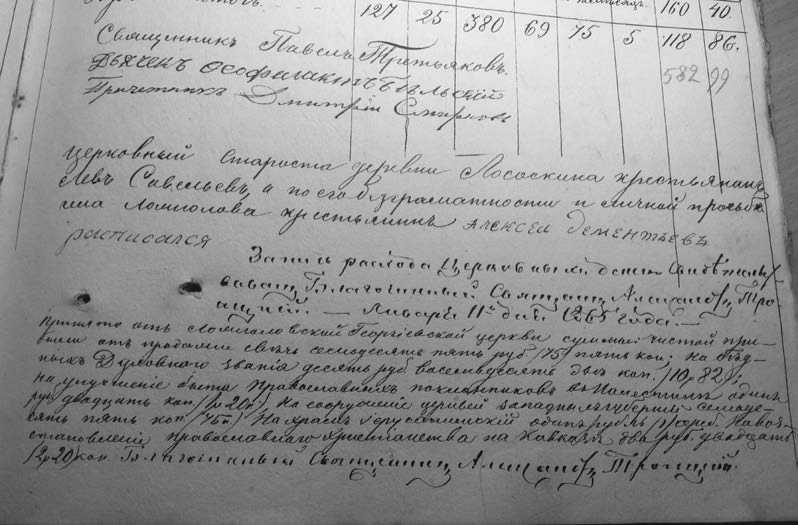 127 25 380 69 75 5 160 40.
118 86.
582 99
Священникъ Павелъ Третьяковъ.
Дьячекъ Ѳеофилактъ Бѣльский
Причетникъ Дмитрій Смирновъ
Церковный староста деревни Лососкина крестьянинъ
Левъ Савельевъ, а по его безграматности и личной прозьбѣ
села Ламполова крестьянинъ Алексей Дементьевъ
расписался
Запись расхода Церковныхъ денегъ свидѣтельст
вовалъ Благочинный Священ. Александръ Тро
ицкій. — Января 11го дня 1865 года. —
Принято отъ Георгіевской церкви суммы: чистой при-
были отъ продажи свѣчь семьдесятъ пять руб /75 пять коп; на бѣд-
ныхъ Духовнаго званія десять руб. восемьдесятъ двѣ коп. /10 р 82 к/;
на улучшение быта Православныхъ поклонниковъ въ Палестинѣ одинъ
руб двадцать коп. /1 р 20 к/ На сооружение церквей западныхъ губерній семьде-
сятъ пять коп /75 к/ На храмъ Іерусалимскій одинъ рубль
становленіе православнаго христіанства на Кавказѣ два руб. двадцать
/2 р 20/ коп. Благочинный Священникъ Александръ Троицкій.